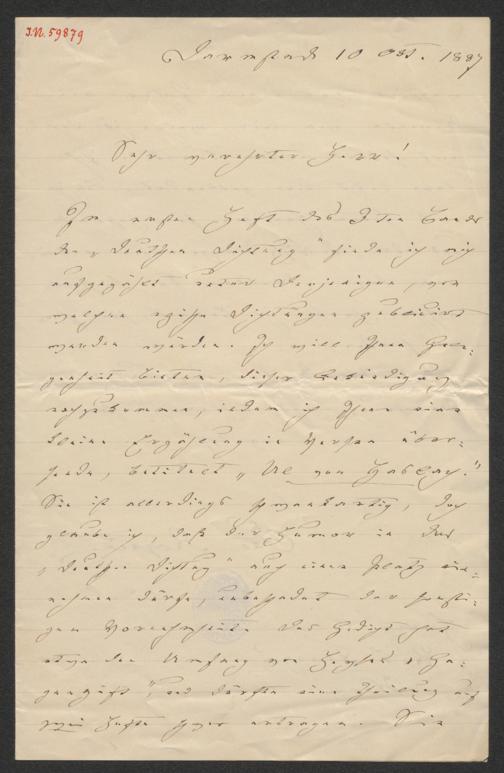 I.N. 59879
Darmstadt 10 Okt. 1887
Sehr verehrter Herr!
Im ersten Heft des 3ten Bandes
der „Deutschen Dichtung" finde ich mich
aufgezählt unter Denjenigen, von
welchen epische Dichtungen publicirt
werden würden. Ich will Ihnen Gele-
genheit bieten, dieser
nachzukommen, indem ich Ihnen eine
kleine Erzählung in Versen über-
sende, betitelt „Ul von Haslach."
Sie ist allerdings schwankartig, doch
glaube ich, daß der Humor in der
„Deutschen Dichtung" auch einen Platz ein-
nehmen dürfe, unbeschadet der sonsti-
gen Vornehmheit. Das Gedicht hat
etwa den Umfang von Heyses
und dürfte eine Theilung auf
zwei Hefte schwer ertragen. Sie